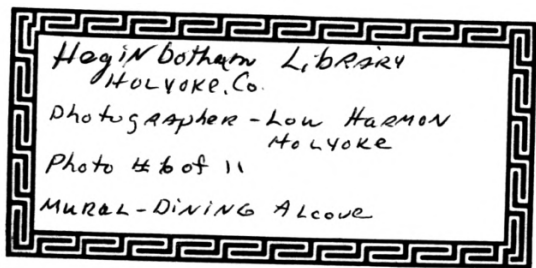 Heginbotham Library
Holyoke, Co.
Photographer - Lou Harmon
Holyoke
Photo # 6 of 11
Mural - Dining Alcove